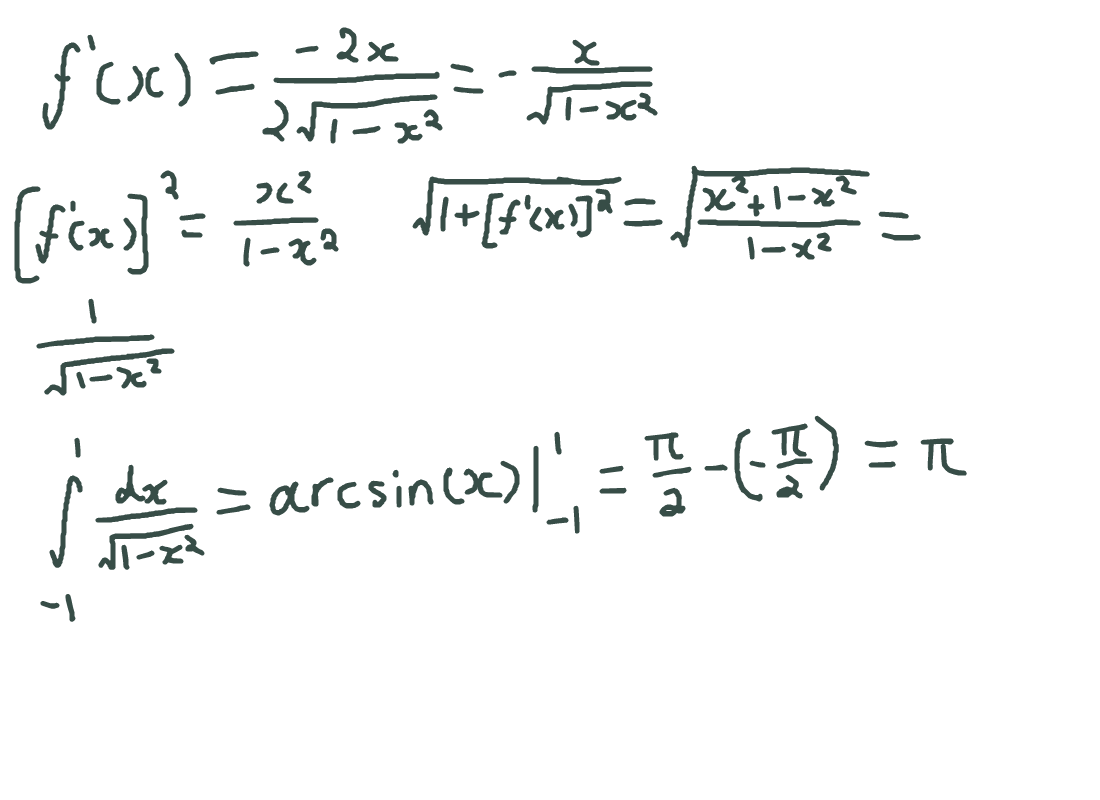 f'(x) = \frac{-2x}{2\sqrt{1-x^2}} = -\frac{x}{\sqrt{1-x^2}}
[f'(x)]^2 = \frac{x^2}{1-x^2} \sqrt{1+[f'(x)]^2} = \sqrt{\frac{x^2+1-x^2}{1-x^2}} =
\frac{1}{\sqrt{1-x^2}}
\int_{-1}^{1} \frac{dx}{\sqrt{1-x^2}} = arcsin(x)|_{-1}^{1} = \frac{π}{2} - (-\frac{π}{2}) = π